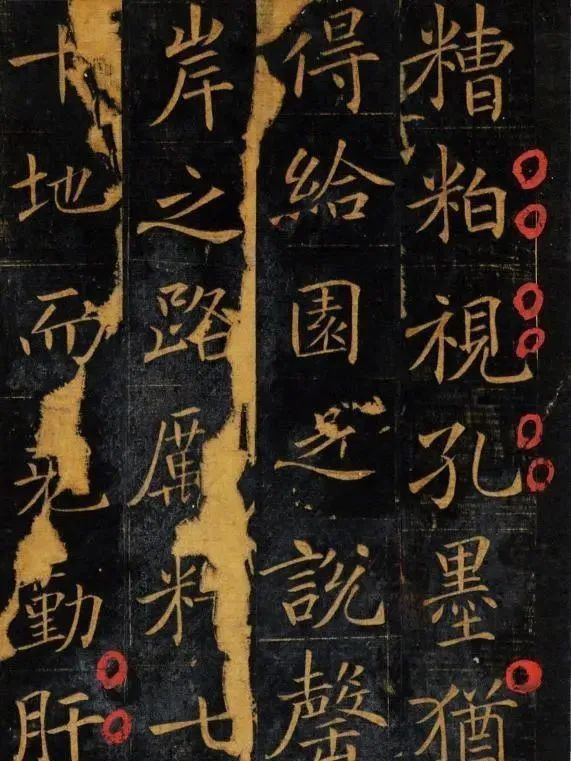 糟粕視孔墨猶
得給園之說罄
岸之路厲料七
十地而勤肝